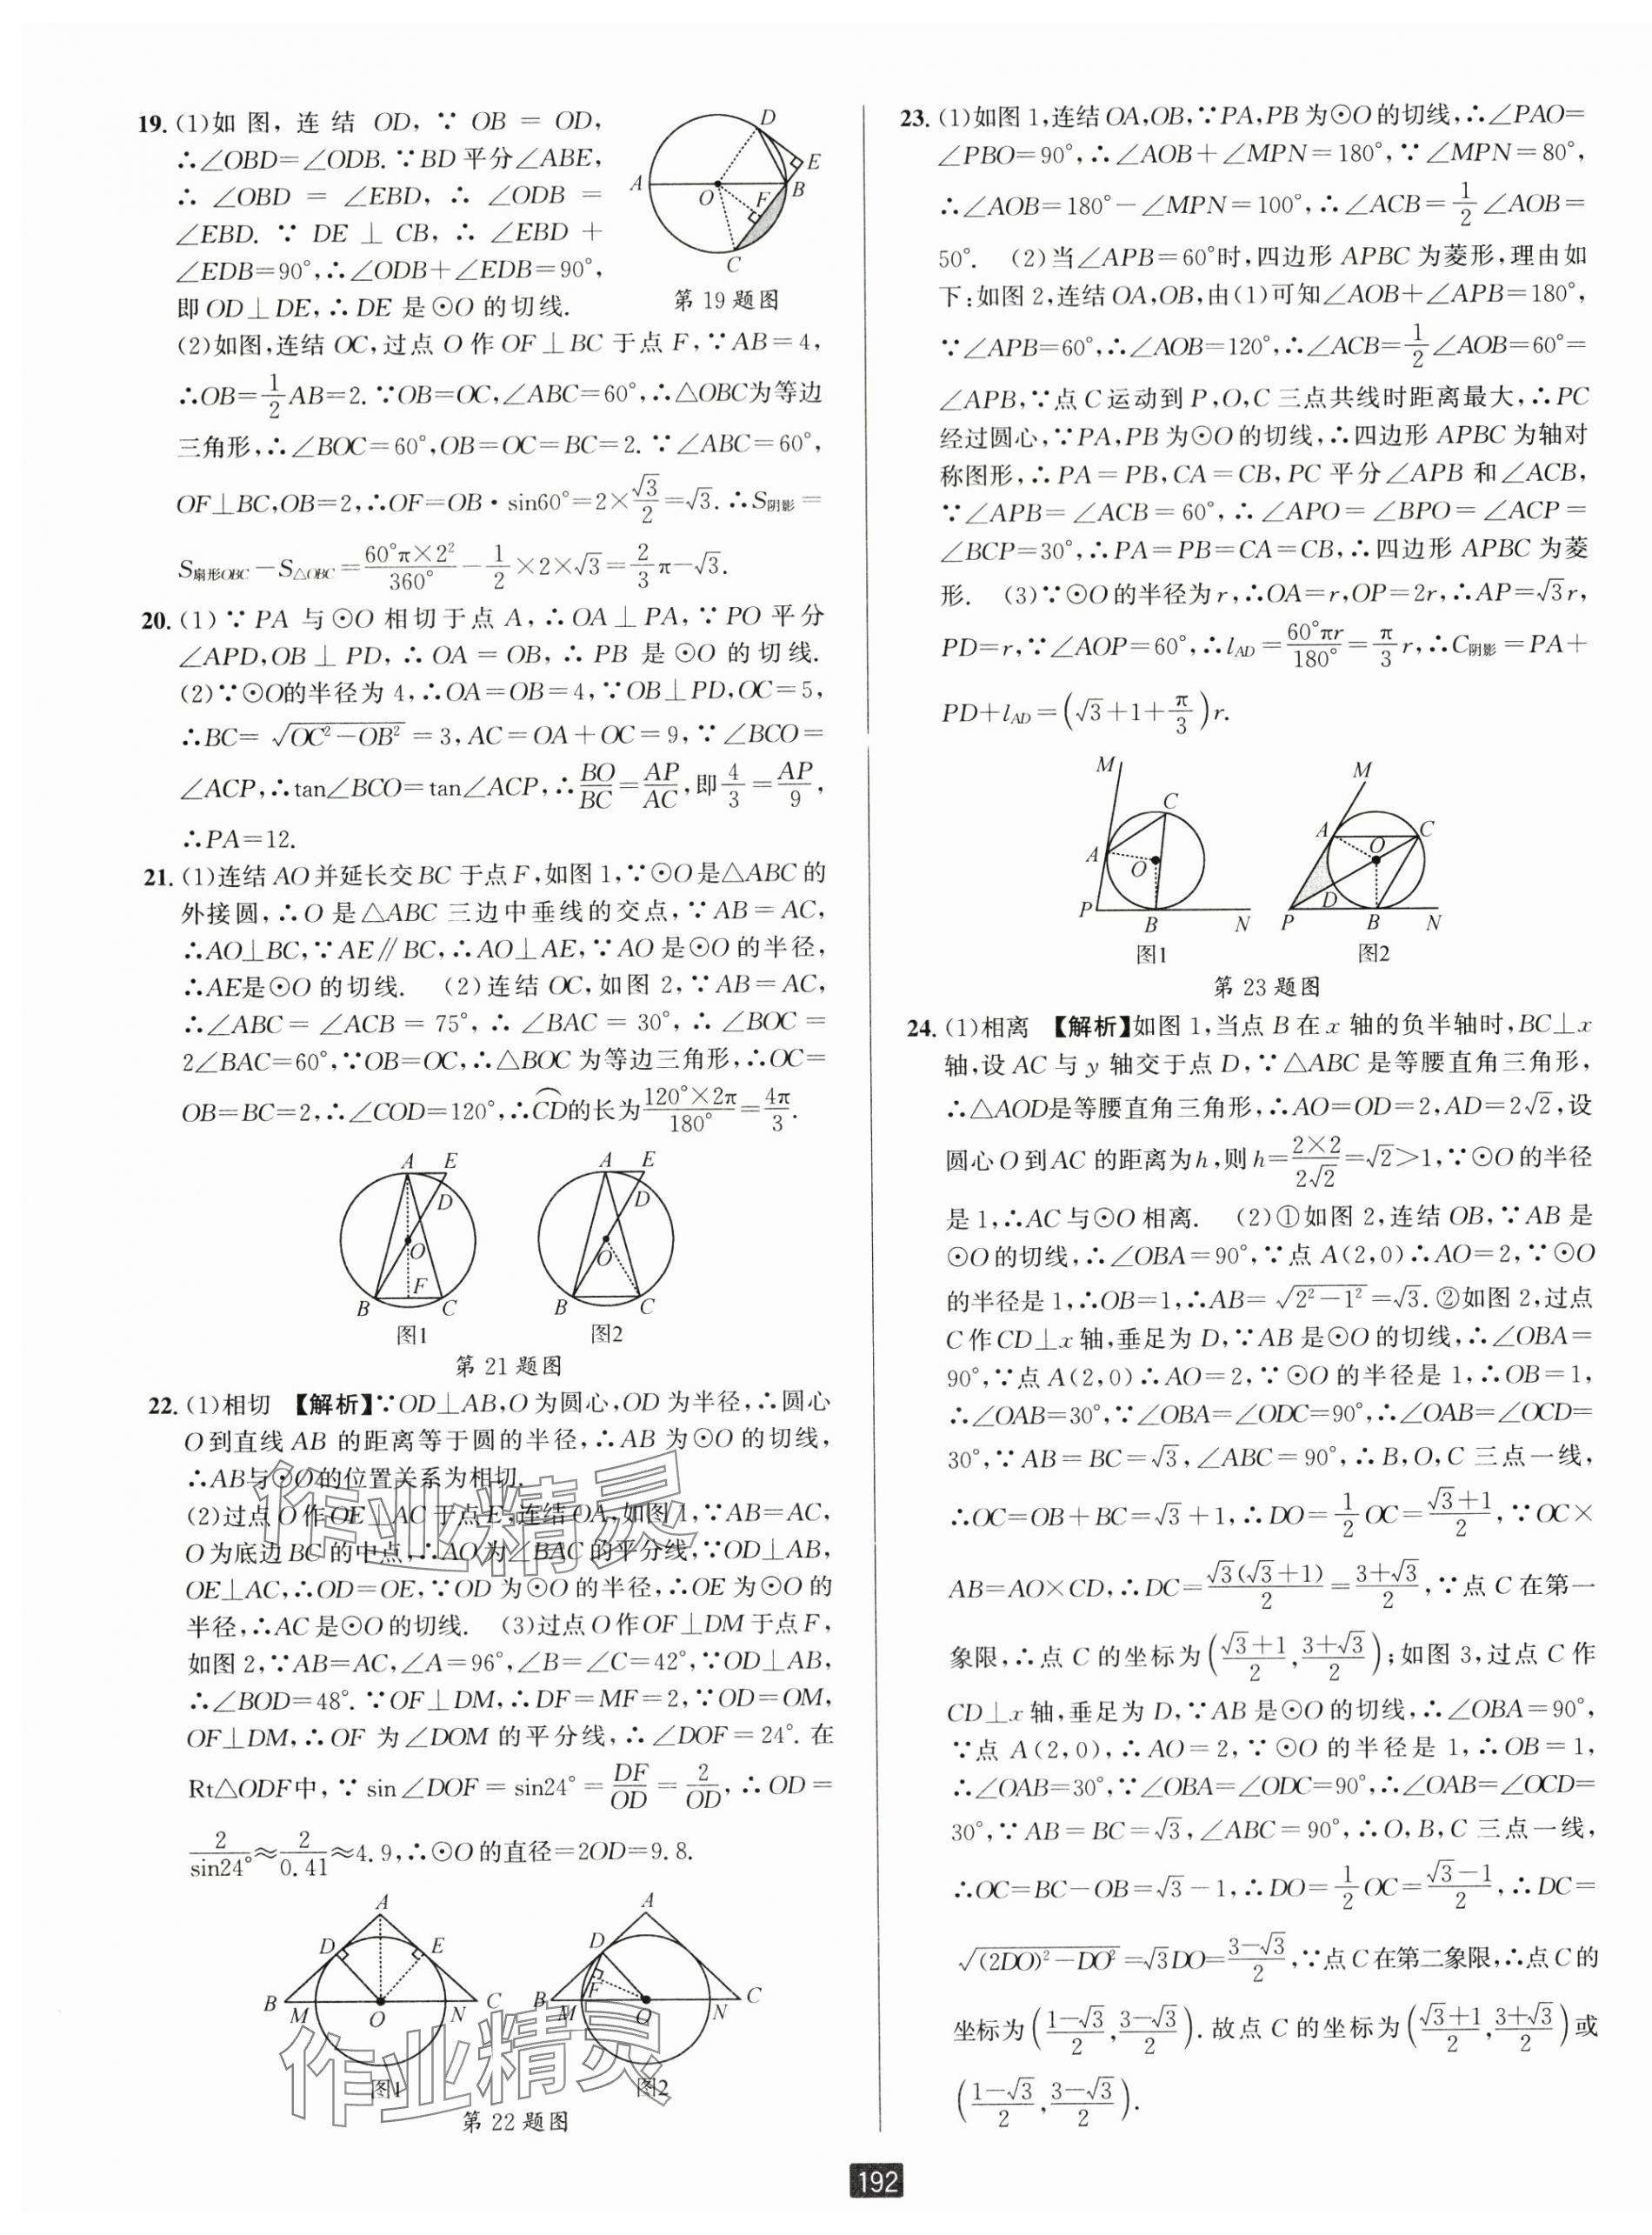 19. (1)如图,连结 OD,∵ OB = OD,
∴∠OBD=∠ODB.∵BD平分∠ABE,
∴ ∠OBD = ∠EBD, ∴ ∠ODB =
∠EBD. ∵ DE ⊥ CB, ∴ ∠EBD +
∠EDB=90°,∴∠ODB+∠EDB=90°,
即OD⊥DE,∴DE 是⊙O 的切线.
A
B
C
D
E
F
O
第 19 题图
(2)如图,连结OC,过点 O 作 OF⊥BC 于点 F,∵AB=4,
∴OB=1/2 AB=2.∵OB=OC,∠ABC=60°,∴△OBC为等边
三角形,∴∠BOC=60°,OB=OC=BC=2.∵∠ABC=60°,
OF⊥BC,OB=2,∴OF=OB·sin60°=2×√3/2=√3.∴S阴影=
S扇形OBC−S△OBC=60°π×2²/360°−1/2×2×√3=2/3π−√3.
20. (1)∵PA 与⊙O 相切于点 A,∴OA⊥PA,∵PO 平分
∠APD,OB⊥PD,∴OA=OB,∴PB 是⊙O 的切线.
(2)∵⊙O的半径为 4,∴OA=OB=4,∵OB⊥PD,OC=5,
∴BC=√(OC²−OB²)=3,AC=OA+OC=9,∵∠BCO=
∠ACP,∴tan∠BCO=tan∠ACP,∴BO/BC=AP/AC,即4/3=AP/9,
∴PA=12.
21. (1)连结AO并延长交BC于点F,如图1,∵⊙O是△ABC的
外接圆,∴O 是△ABC 三边中垂线的交点,∵AB=AC,
∴AO⊥BC,∵AE∥BC,∴AO⊥AE,∵AO 是⊙O 的半径,
∴AE是⊙O 的切线. (2)连结 OC,如图 2,∵AB=AC,
∴∠ABC=∠ACB=75°,∴∠BAC=30°,∴∠BOC=
2∠BAC=60°,∵OB=OC,∴△BOC 为等边三角形,∴OC=
OB=BC=2,∴∠COD=120°,∴⌒CD的长为120°×2π/180°=4π/3.
A E D O F B C
图1
A E D O B C
图2
第 21 题图
22. (1)相切 【解析】∵OD⊥AB,O为圆心,OD为半径,∴圆心
O到直线AB 的距离等于圆的半径,∴AB 为⊙O 的切线,
∴AB与⊙O的位置关系为相切.
(2)过点O作OE⊥AC于点E,连结OA,如图1,∵AB=AC,
O为底边BC的中点,∴AO为∠BAC的平分线,∵OD⊥AB,
OE⊥AC,∴OD=OE,∵OD 为⊙O 的半径,∴OE 为⊙O 的
半径,∴AC是⊙O的切线. (3)过点O作OF⊥DM于点F,
如图2,∵AB=AC,∠A=96°,∠B=∠C=42°,∵OD⊥AB,
∴∠BOD=48°.∵OF⊥DM,∴DF=MF=2,∵OD=OM,
OF⊥DM,∴OF 为∠DOM 的平分线,∴∠DOF=24°.在
Rt△ODF中,∵sin∠DOF=sin24°=DF/OD=2/OD,∴OD=
2/sin24°≈2/0.41≈4.9,∴⊙O的直径=2OD=9.8.
A D E B M O N C
图1
A D F B M O N C
图2
第 22 题图
作业精灵
作业精灵
23. (1)如图1,连结OA,OB,∵PA,PB为⊙O的切线,∴∠PAO=
∠PBO=90°,∴∠AOB+∠MPN=180°,∵∠MPN=80°,
∴∠AOB=180°−∠MPN=100°,∴∠ACB=1/2∠AOB=
50°. (2)当∠APB=60°时,四边形APBC为菱形,理由如
下:如图2,连结OA,OB,由(1)可知∠AOB+∠APB=180°,
∵∠APB=60°,∴∠AOB=120°,∴∠ACB=1/2∠AOB=60°=
∠APB,∵点C运动到P,O,C三点共线时距离最大,∴PC
经过圆心,∵PA,PB为⊙O的切线,∴四边形APBC为轴对
称图形,∴PA=PB,CA=CB,PC平分∠APB和∠ACB,
∵∠APB=∠ACB=60°,∴∠APO=∠BPO=∠ACP=
∠BCP=30°,∴PA=PB=CA=CB,∴四边形APBC为菱
形. (3)∵⊙O的半径为r,∴OA=r,OP=2r,∴AP=√3r,
PD=r,∵∠AOP=60°,∴lAD=60°πr/180°=π/3 r,∴C阴影=PA+
PD+lAD=(√3+1+π/3)r.
M C A O P B N
图1
M A C O D P B N
图2
第 23 题图
24. (1)相离 【解析】如图1,当点B在x轴的负半轴时,BC⊥x
轴,设AC与y轴交于点D,∵△ABC是等腰直角三角形,
∴△AOD是等腰直角三角形,∴AO=OD=2,AD=2√2,设
圆心O到AC的距离为h,则h=2×2/2√2=√2>1,∵⊙O的半径
是1,∴AC与⊙O相离. (2)①如图2,连结OB,∵AB是
⊙O的切线,∴∠OBA=90°,∵点A(2,0)∴AO=2,∵⊙O
的半径是1,∴OB=1,∴AB=√(2²−1²)=√3.②如图2,过点
C作CD⊥x轴,垂足为D,∵AB是⊙O的切线,∴∠OBA=
90°,∵点A(2,0)∴AO=2,∵⊙O的半径是1,∴OB=1,
∴∠OAB=30°,∵∠OBA=∠ODC=90°,∴∠OAB=∠OCD=
30°,∵AB=BC=√3,∠ABC=90°,∴B,O,C三点一线,
∴OC=OB+BC=√3+1,∴DO=1/2 OC=(√3+1)/2,∵OC×
AB=AO×CD,∴DC=√3(√3+1)/2=(3+√3)/2,∵点C在第一
象限,∴点C的坐标为((√3+1)/2,(3+√3)/2);如图3,过点C作
CD⊥x轴,垂足为D,∵AB是⊙O的切线,∴∠OBA=90°,
∵点A(2,0),∴AO=2,∵⊙O的半径是1,∴OB=1,
∴∠OAB=30°,∵∠OBA=∠ODC=90°,∴∠OAB=∠OCD=
30°,∵AB=BC=√3,∠ABC=90°,∴O,B,C三点一线,
∴OC=BC−OB=√3−1,∴DO=1/2 OC=(√3−1)/2,∴DC=
√((2DO)²−DO²)=√3DO=(3−√3)/2,∵点C在第二象限,∴点C的
坐标为((1−√3)/2,(3−√3)/2).故点C的坐标为((√3+1)/2,(3+√3)/2)或
((1−√3)/2,(3−√3)/2).
192